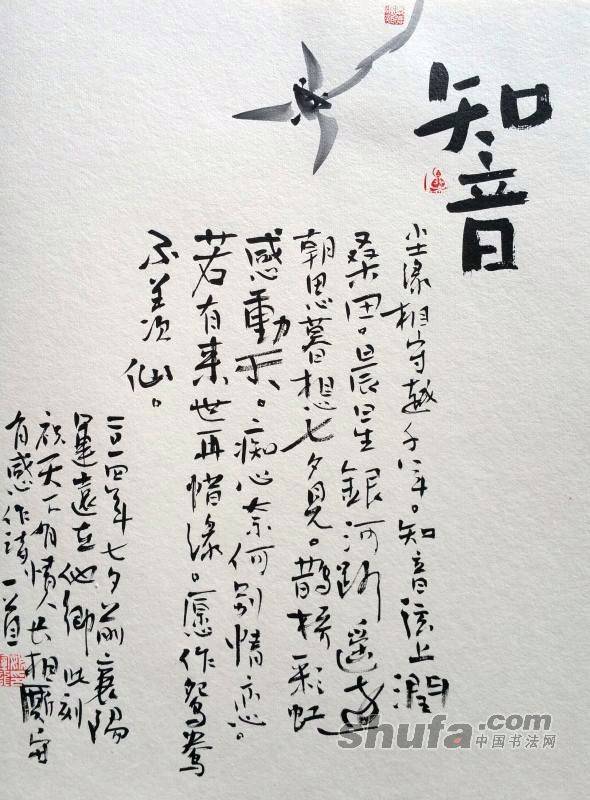 知音
尘缘相守越千年。知音弦上润
桑田。晨星银河路遥遥
朝思暮想七夕見。鹊桥彩虹
感動天。痴心奈何别情亦恋。
若有来世再惜缘。愿作鴛鸯
不羡仙。
二〇一四年七夕前襄陽
運遠在他鄉此刻
祝天下有情人长相厮守
有感作诗一首
shufa.com
中国书法网